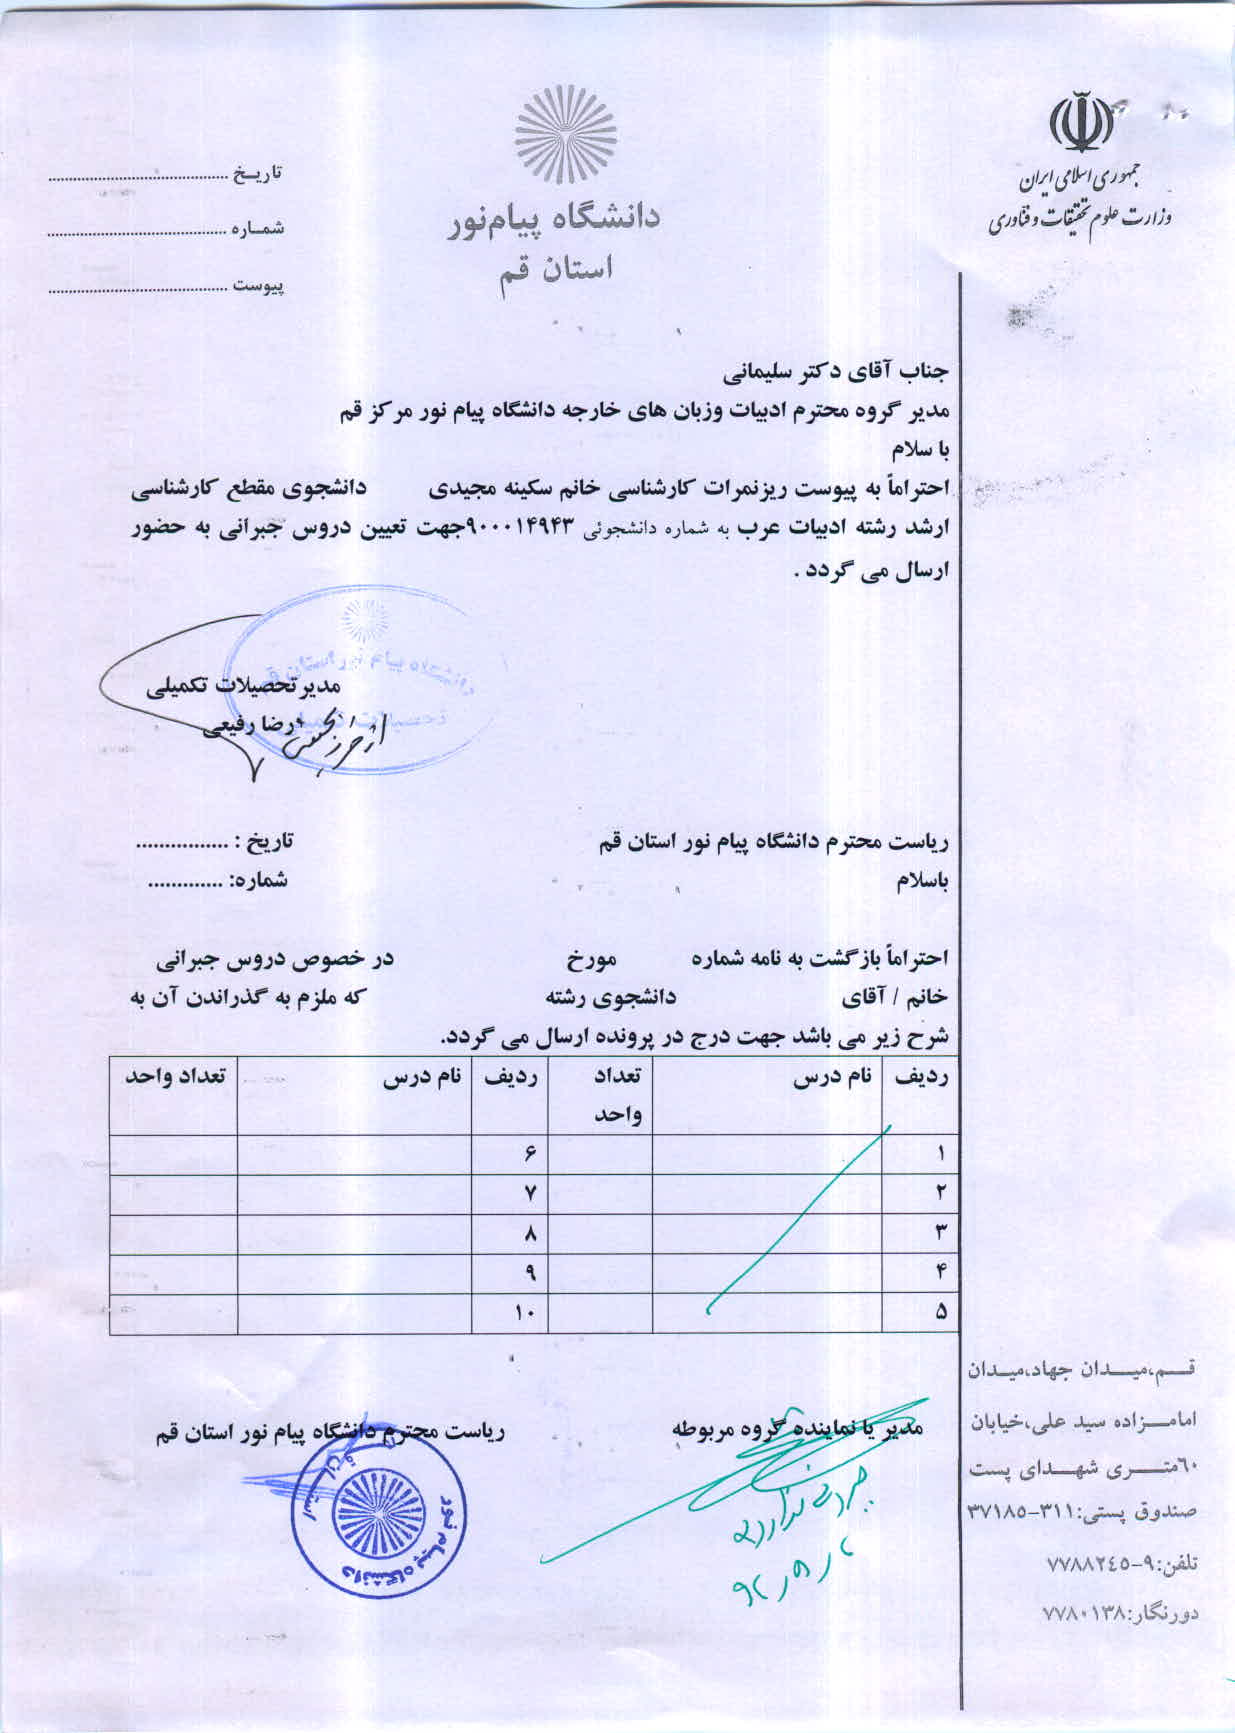 جمهوری اسلامی ایران
وزارت علوم تحقیقات و فناوری
دانشگاه پیام‌نور
استان قم
تاریـخ ......................................
شمـاره ......................................
پیوست ......................................
جناب آقای دکتر سلیمانی
مدیر گروه محترم ادبیات وزبان های خارجه دانشگاه پیام نور مرکز قم
با سلام
احتراماً به پیوست ریزنمرات کارشناسی خانم سکینه مجیدی دانشجوی مقطع کارشناسی
ارشد رشته ادبیات عرب به شماره دانشجوئی ۹۰۰۰۱۴۹۴۳جهت تعیین دروس جبرانی به حضور
ارسال می گردد .
مدیر تحصیلات تکمیلی
رضا رفیعی
ریاست محترم دانشگاه پیام نور استان قم تاریخ : ................
باسلام شماره: .............
احتراماً بازگشت به نامه شماره مورخ در خصوص دروس جبرانی
خانم / آقای دانشجوی رشته که ملزم به گذراندن آن به
شرح زیر می باشد جهت درج در پرونده ارسال می گردد.
ردیف نام درس تعداد واحد ردیف نام درس تعداد واحد
۱ ۶
۲ ۷
۳ ۸
۴ ۹
۵ ۱۰
مدیر یا نماینده گروه مربوطه ریاست محترم دانشگاه پیام نور استان قم
دانشگاه پیام نور
استان قم
قـــم،میـــدان جهاد،میـدان
امامـــزاده سید علی،خیابان
۶۰متـــری شهـــدای پست
صندوق پستی:۳۱۱-۳۷۱۸۵
تلفن:۹-۷۷۸۸۲۴۵
دورنگار:۷۷۸۰۱۳۸